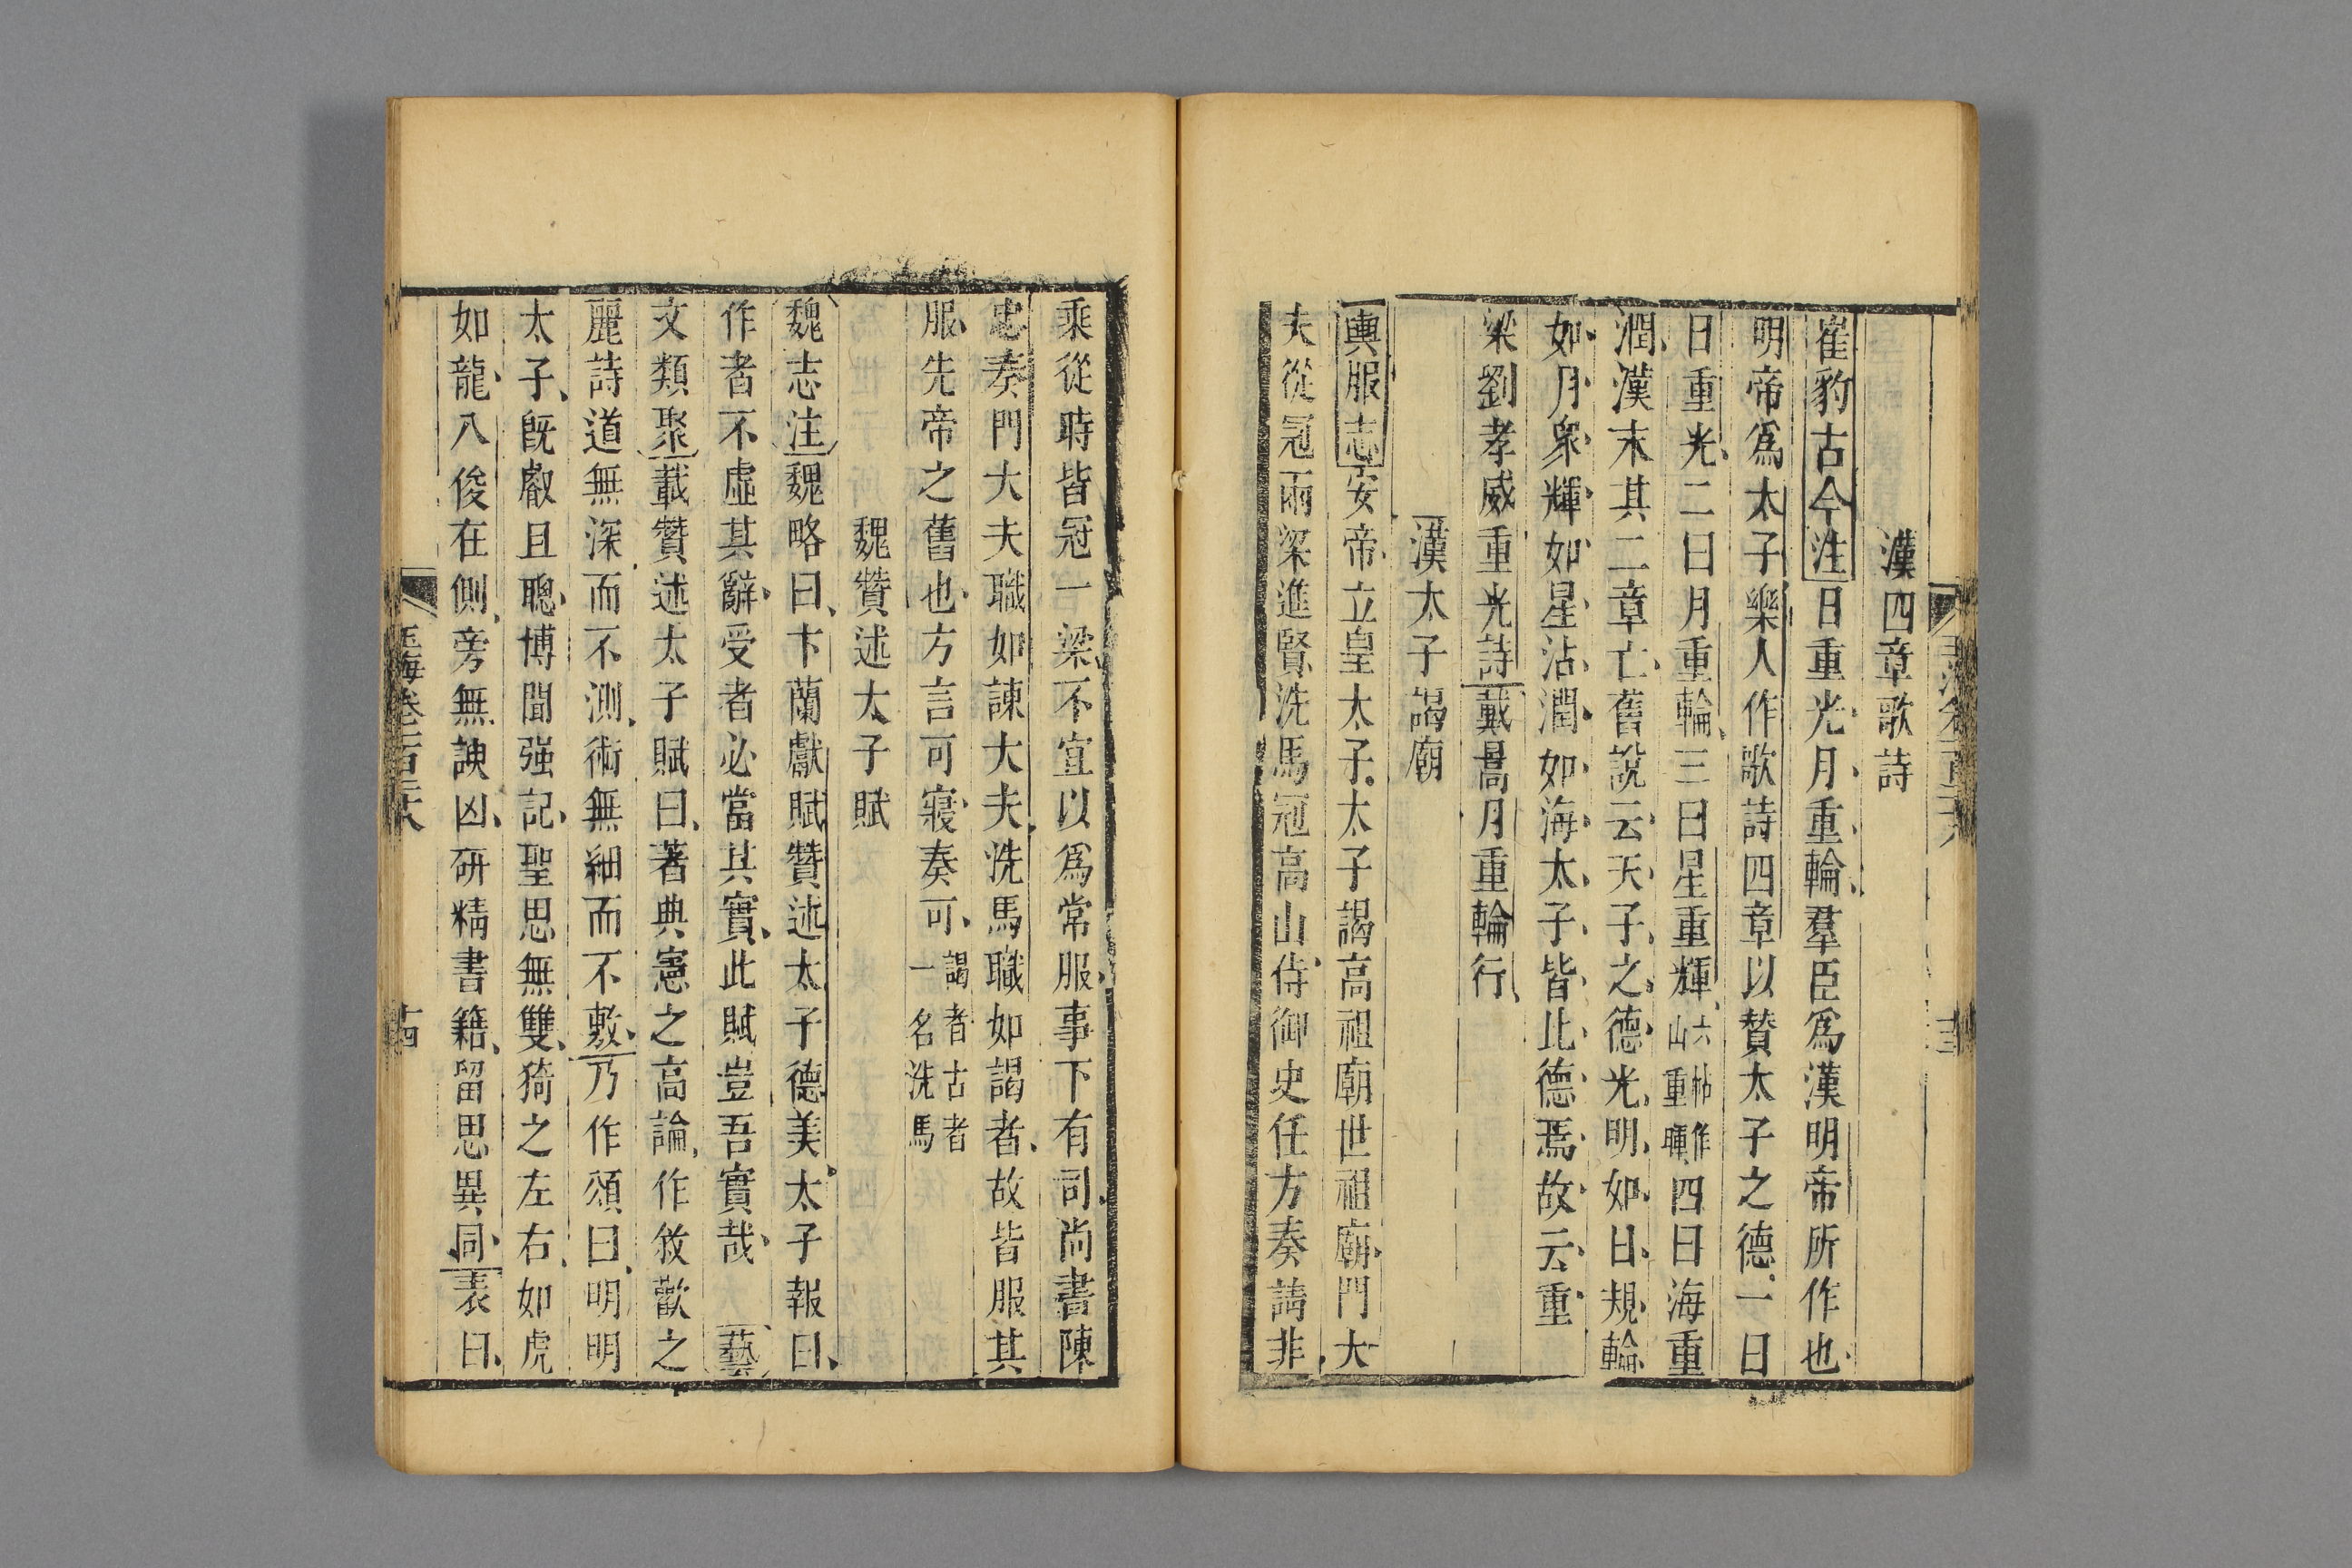 漢四章歌詩
崔豹古今注日重光月重輪羣臣爲漢明帝所作也
明帝爲太子樂人作歌詩四章以贊太子之德一曰
日重光二曰月重輪三曰星重輝六帖作山重暉四曰海重
潤漢末其二章亡舊說云天子之德光明如日規輪
如月衆輝如星沾潤如海太子皆比德焉故云重
梁劉孝威重光詩戴暠月重輪行
漢太子謁廟
輿服志安帝立皇太子太子謁高祖廟世祖廟門大
夫從冠兩梁進賢洗馬冠高山侍御史任方奏請非
乘從時皆冠一梁不宜以爲常服事下有司尚書陳
忠奏門大夫職如諫大夫洗馬職如謁者故皆服其
服先帝之舊也方言可寢奏可謁者古者一名洗馬
魏贊述太子賦
魏志注魏略曰卞蘭獻賦贊述太子德美太子報曰
作者不虛其辭受者必當其實此賦豈吾實哉 藝
文類聚載贊述太子賦曰著典憲之高論作敘歡之
麗詩道無深而不測術無細而不敷乃作頌曰明明
太子旣叡且聰博聞强記聖思無雙猗之左右如虎
如龍八俊在側旁無諛凶硏精書籍留思異同表曰
玉海卷一百二十八
十四